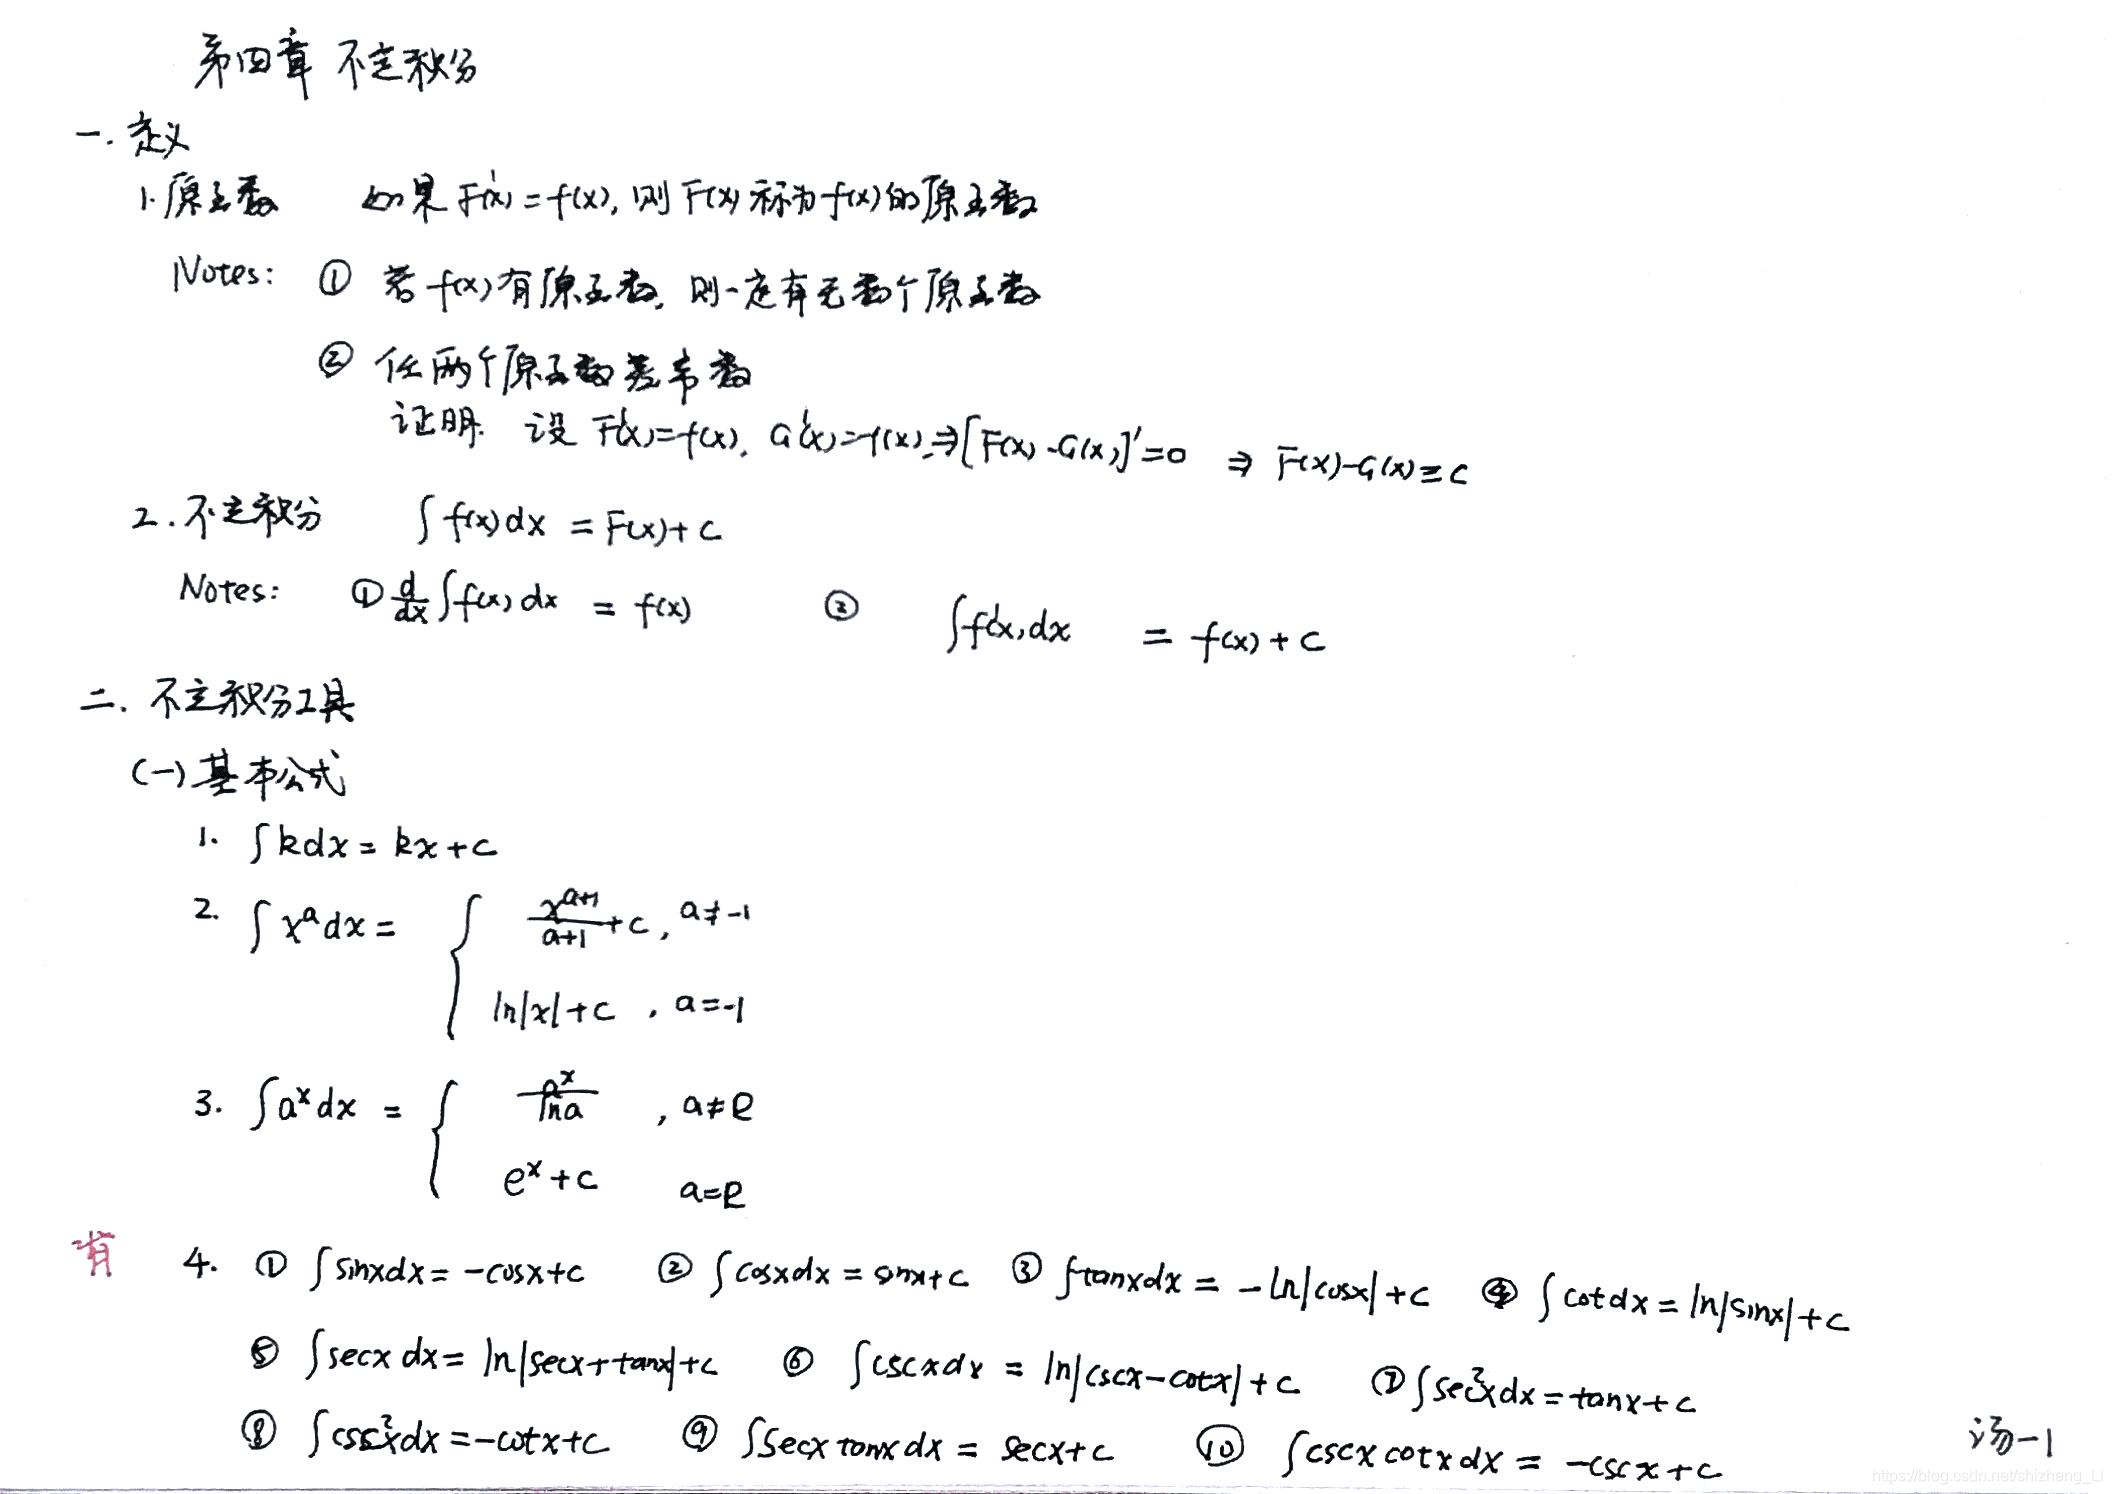 第四章 不定积分
一. 定义
1. 原函数 如果 F'(x) = f(x), 则 F(x) 称为 f(x) 的原函数
Notes: ① 若 f(x) 有原函数, 则一定有无数个原函数
② 任两个原函数差常数
证明. 设 F'(x) = f(x), G'(x) = f(x), ⇒ [F(x) - G(x)]' = 0 ⇒ F(x) - G(x) ≡ C
2. 不定积分 ∫ f(x) dx = F(x) + C
Notes: ① d/dx ∫ f(x) dx = f(x) ② ∫ f'(x) dx = f(x) + C
二. 不定积分工具
(一) 基本公式
1. ∫ k dx = kx + C
2. ∫ x^a dx = { x^(a+1)/(a+1) + C, a ≠ -1
ln|x| + C, a = -1
3. ∫ a^x dx = { a^x/ln a, a ≠ e
e^x + C a = e
4. ① ∫ sinx dx = -cosx + C ② ∫ cosx dx = sinx + C ③ ∫ tanx dx = -ln|cosx| + C ④ ∫ cot dx = ln|sinx| + C
⑤ ∫ secx dx = ln|secx + tanx| + C ⑥ ∫ cscx dx = ln|cscx - cotx| + C ⑦ ∫ sec²x dx = tanx + C
⑧ ∫ csc²x dx = -cotx + C ⑨ ∫ secx tanx dx = secx + C ⑩ ∫ cscx cotx dx = -cscx + C
汤-1
https://blog.csdn.net/shizheng_Li